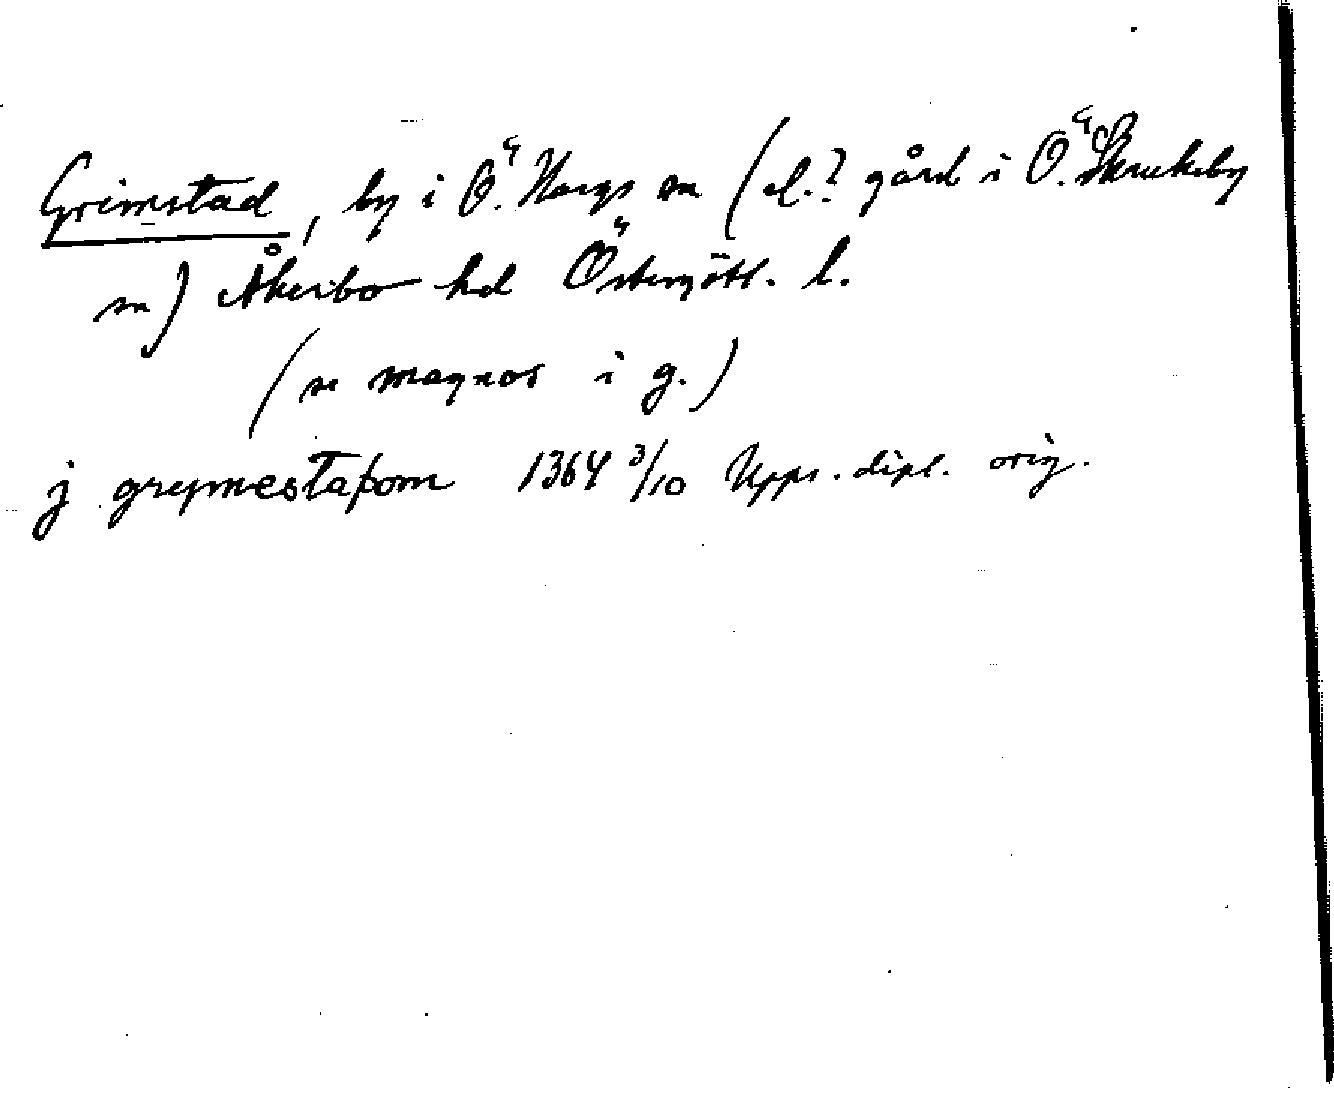 Grimstad, by i Ö. Hargs sn (el.? gård i Ö. Skrukeby
sn) Åkerbo hd Östergötl. l.
(se magnos i g.)
j grymestaþom 1364 3/10 Upps. dipl. orig.